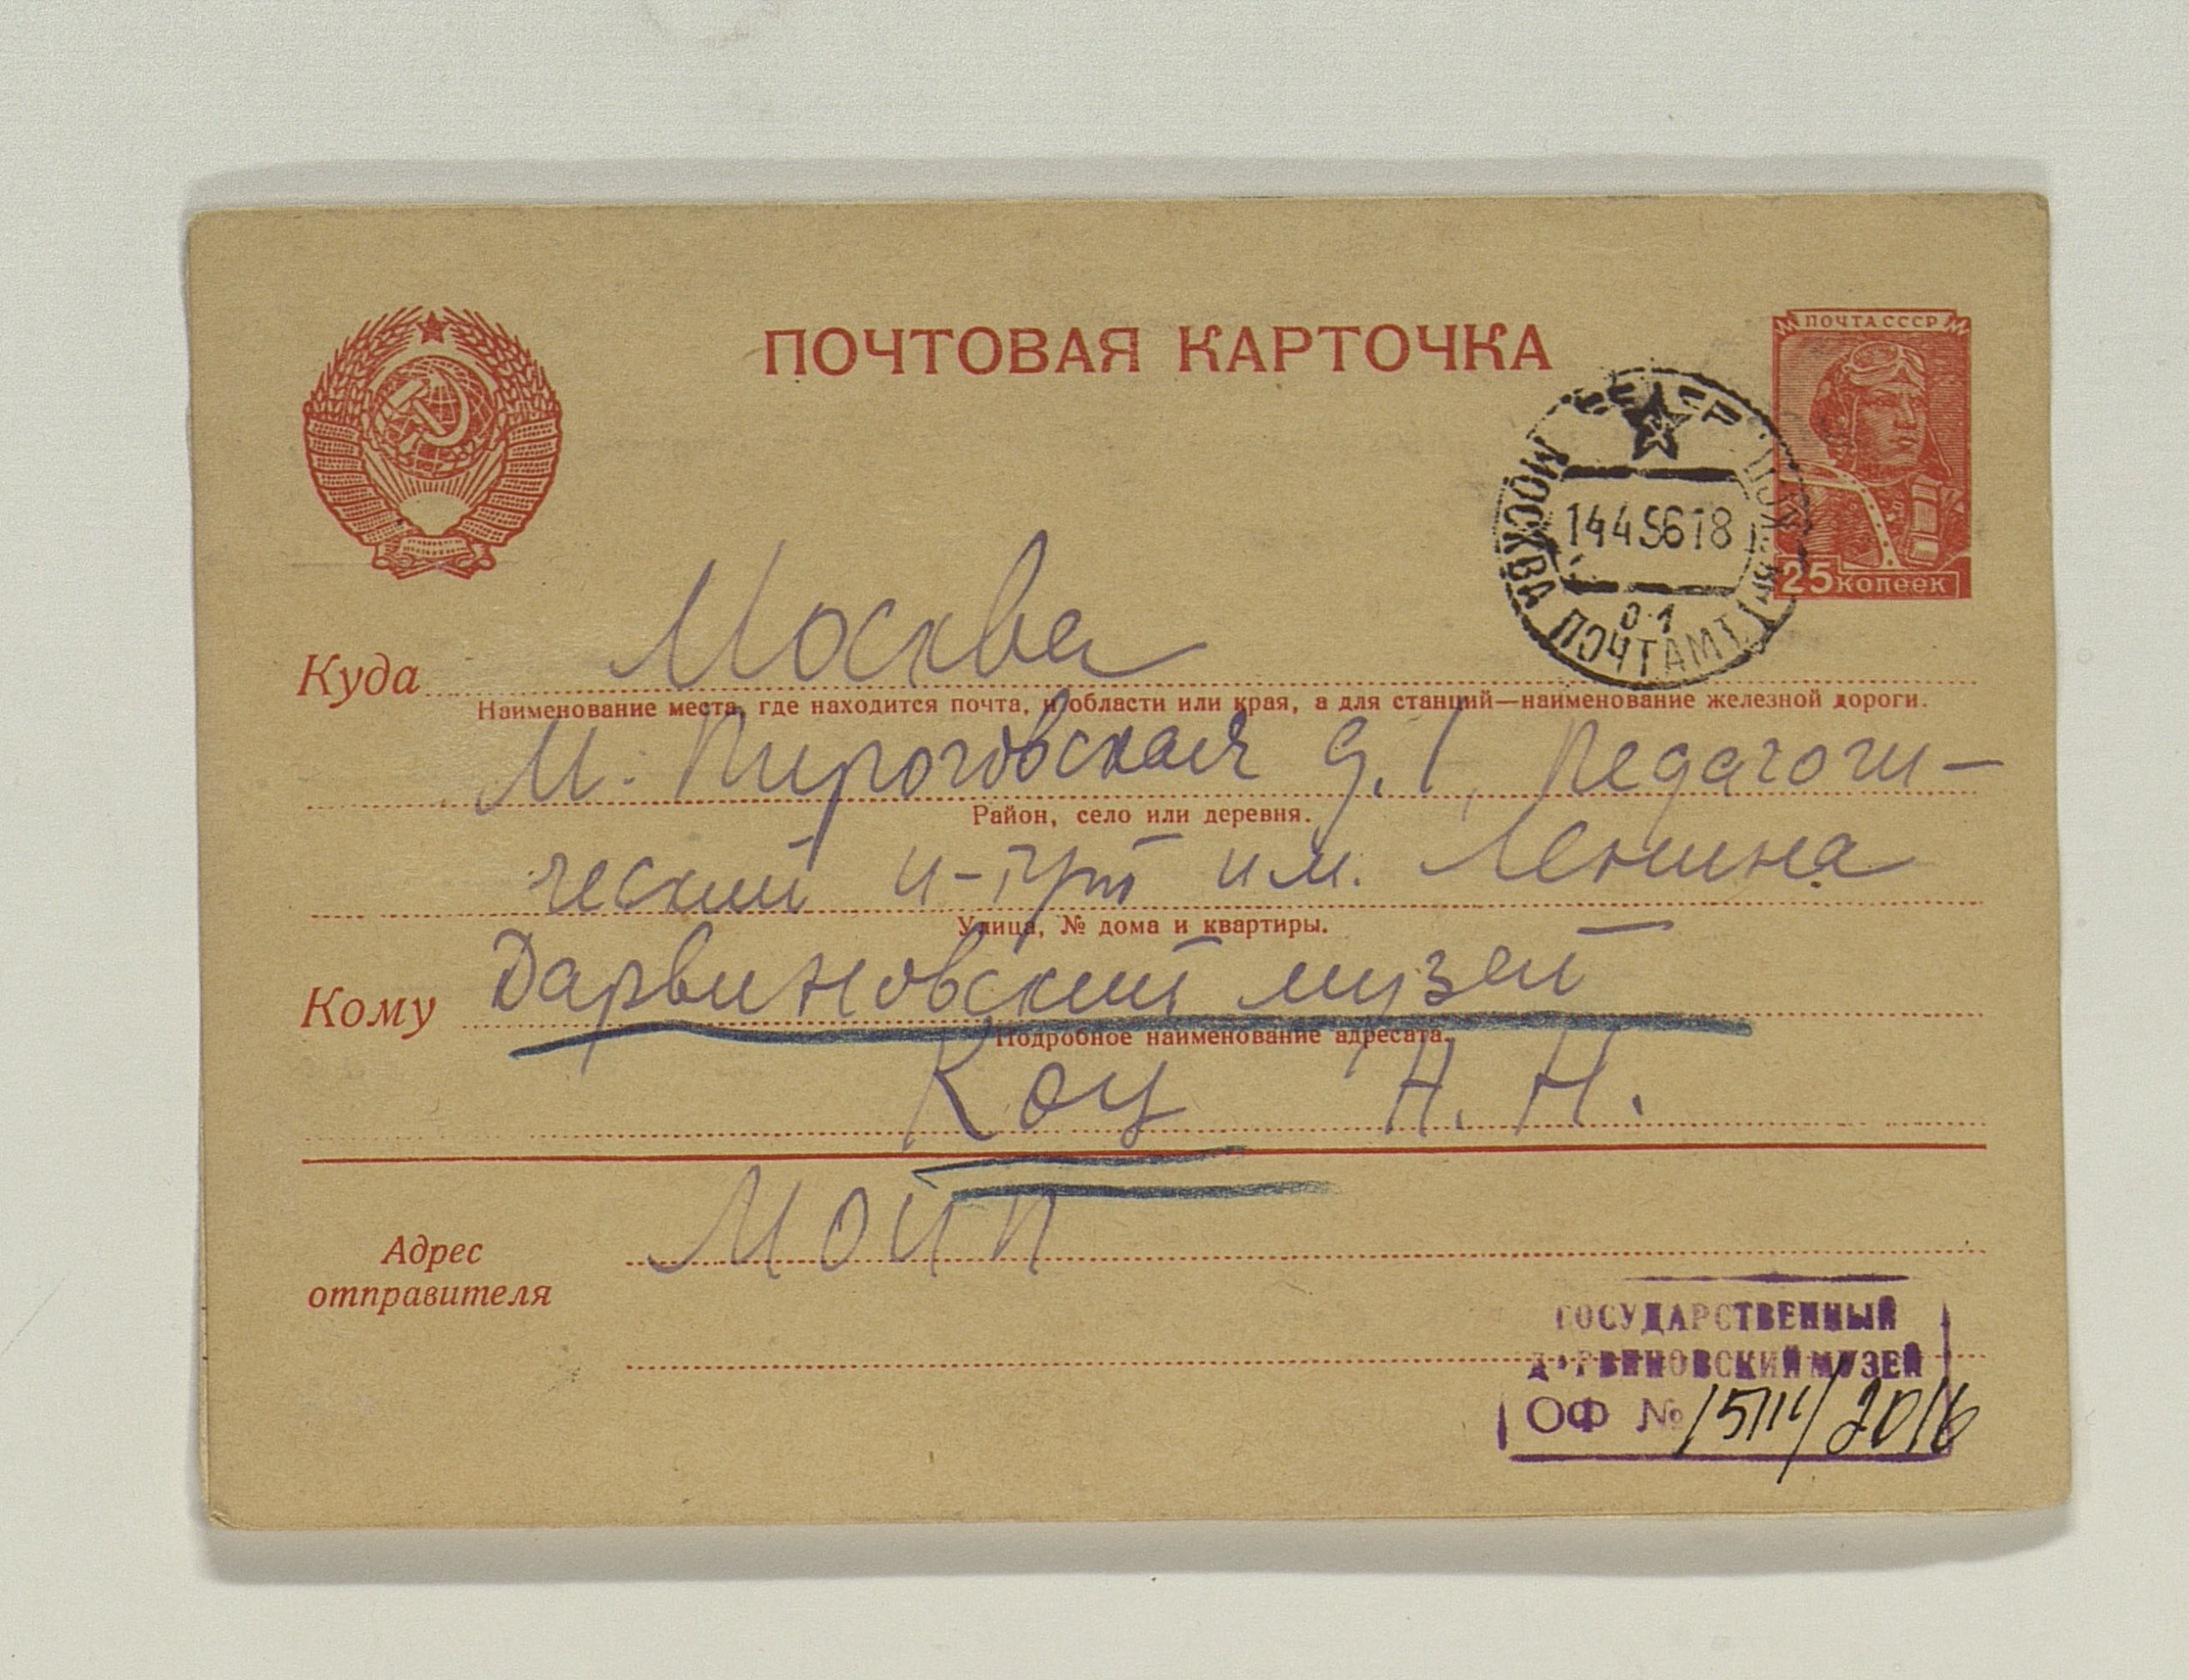 ПОЧТОВАЯ КАРТОЧКА
ПОЧТА СССР
25 КОПЕЕК
МОСКВА ПОЧТАМТ
14 4 56 18
Куда Москва
Наименование места, где находится почта, и области или края, а для станций—наименование железной дороги.
М. Пироговская д. 1, Педагоги-
Район, село или деревня.
ческий и-тут им. Ленина
Улица, № дома и квартиры.
Кому Дарвиновский музей
Подробное наименование адресата.
Коц Н. Н.
Адрес отправителя МОИП
ГОСУДАРСТВЕННЫЙ
ДАРВИНОВСКИЙ МУЗЕЙ
ОФ №